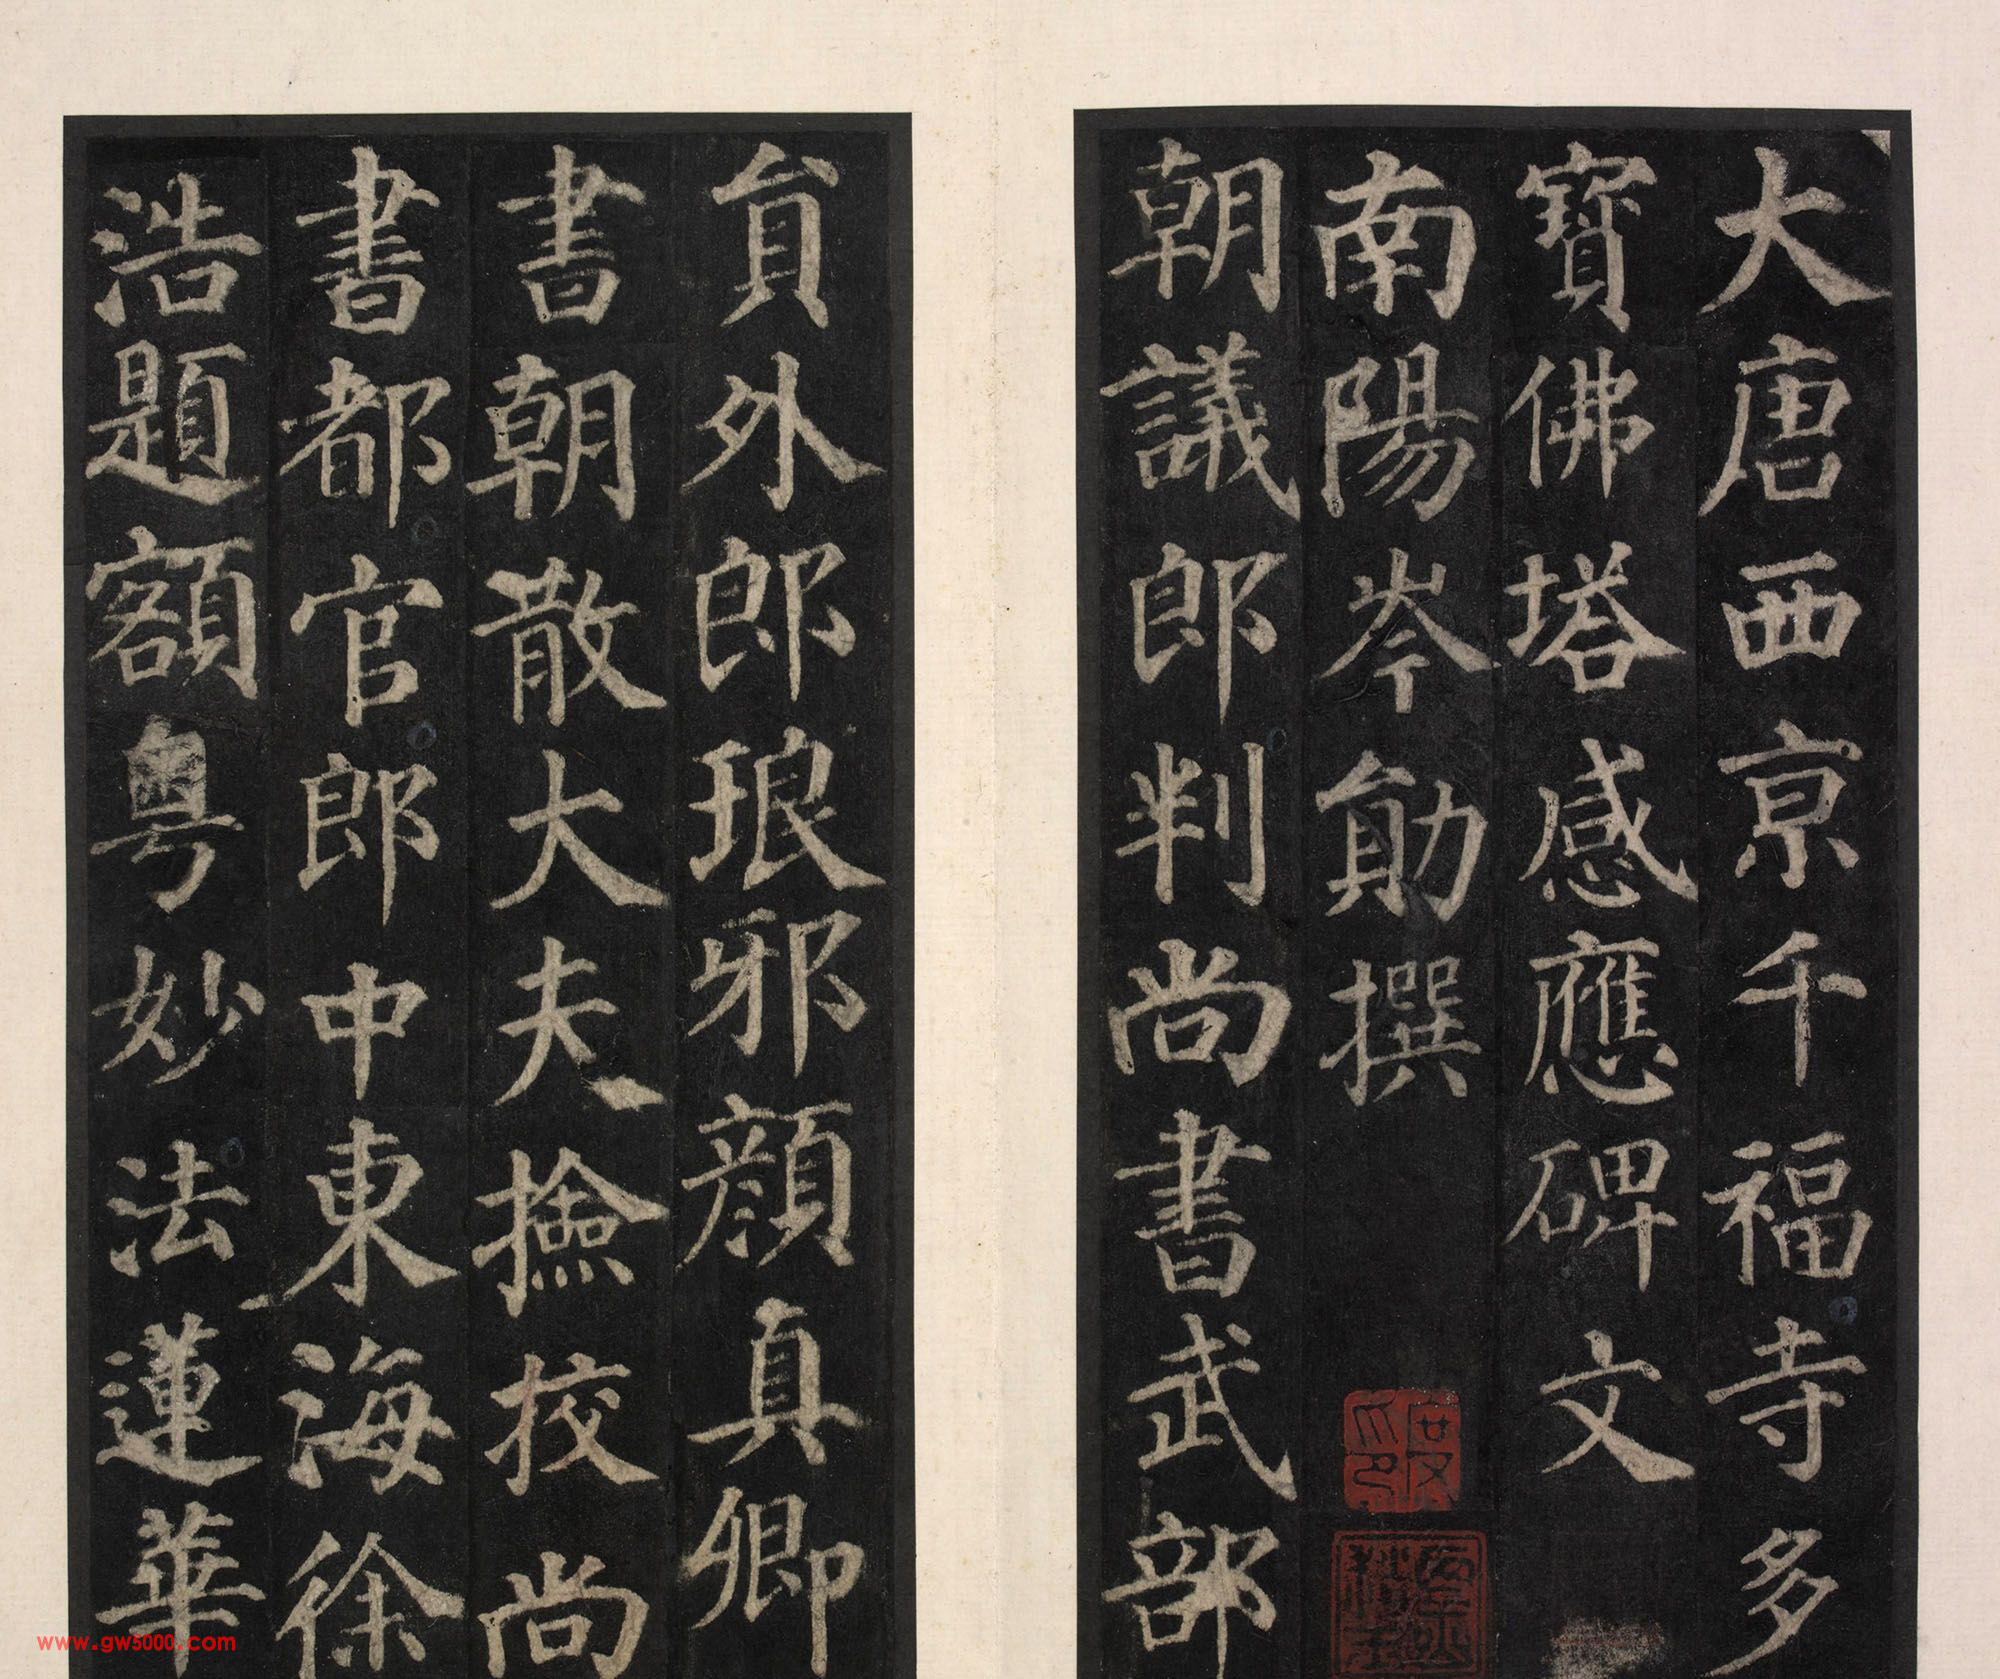 大唐西京千福寺多
寶佛塔感應碑文
南陽岑勛撰
朝議郎判尚書武部
貟外郎琅邪顏真卿
書朝散大夫撿挍尚
書都官郎中東海徐
浩題額粵妙法蓮華
www.gw5000.com